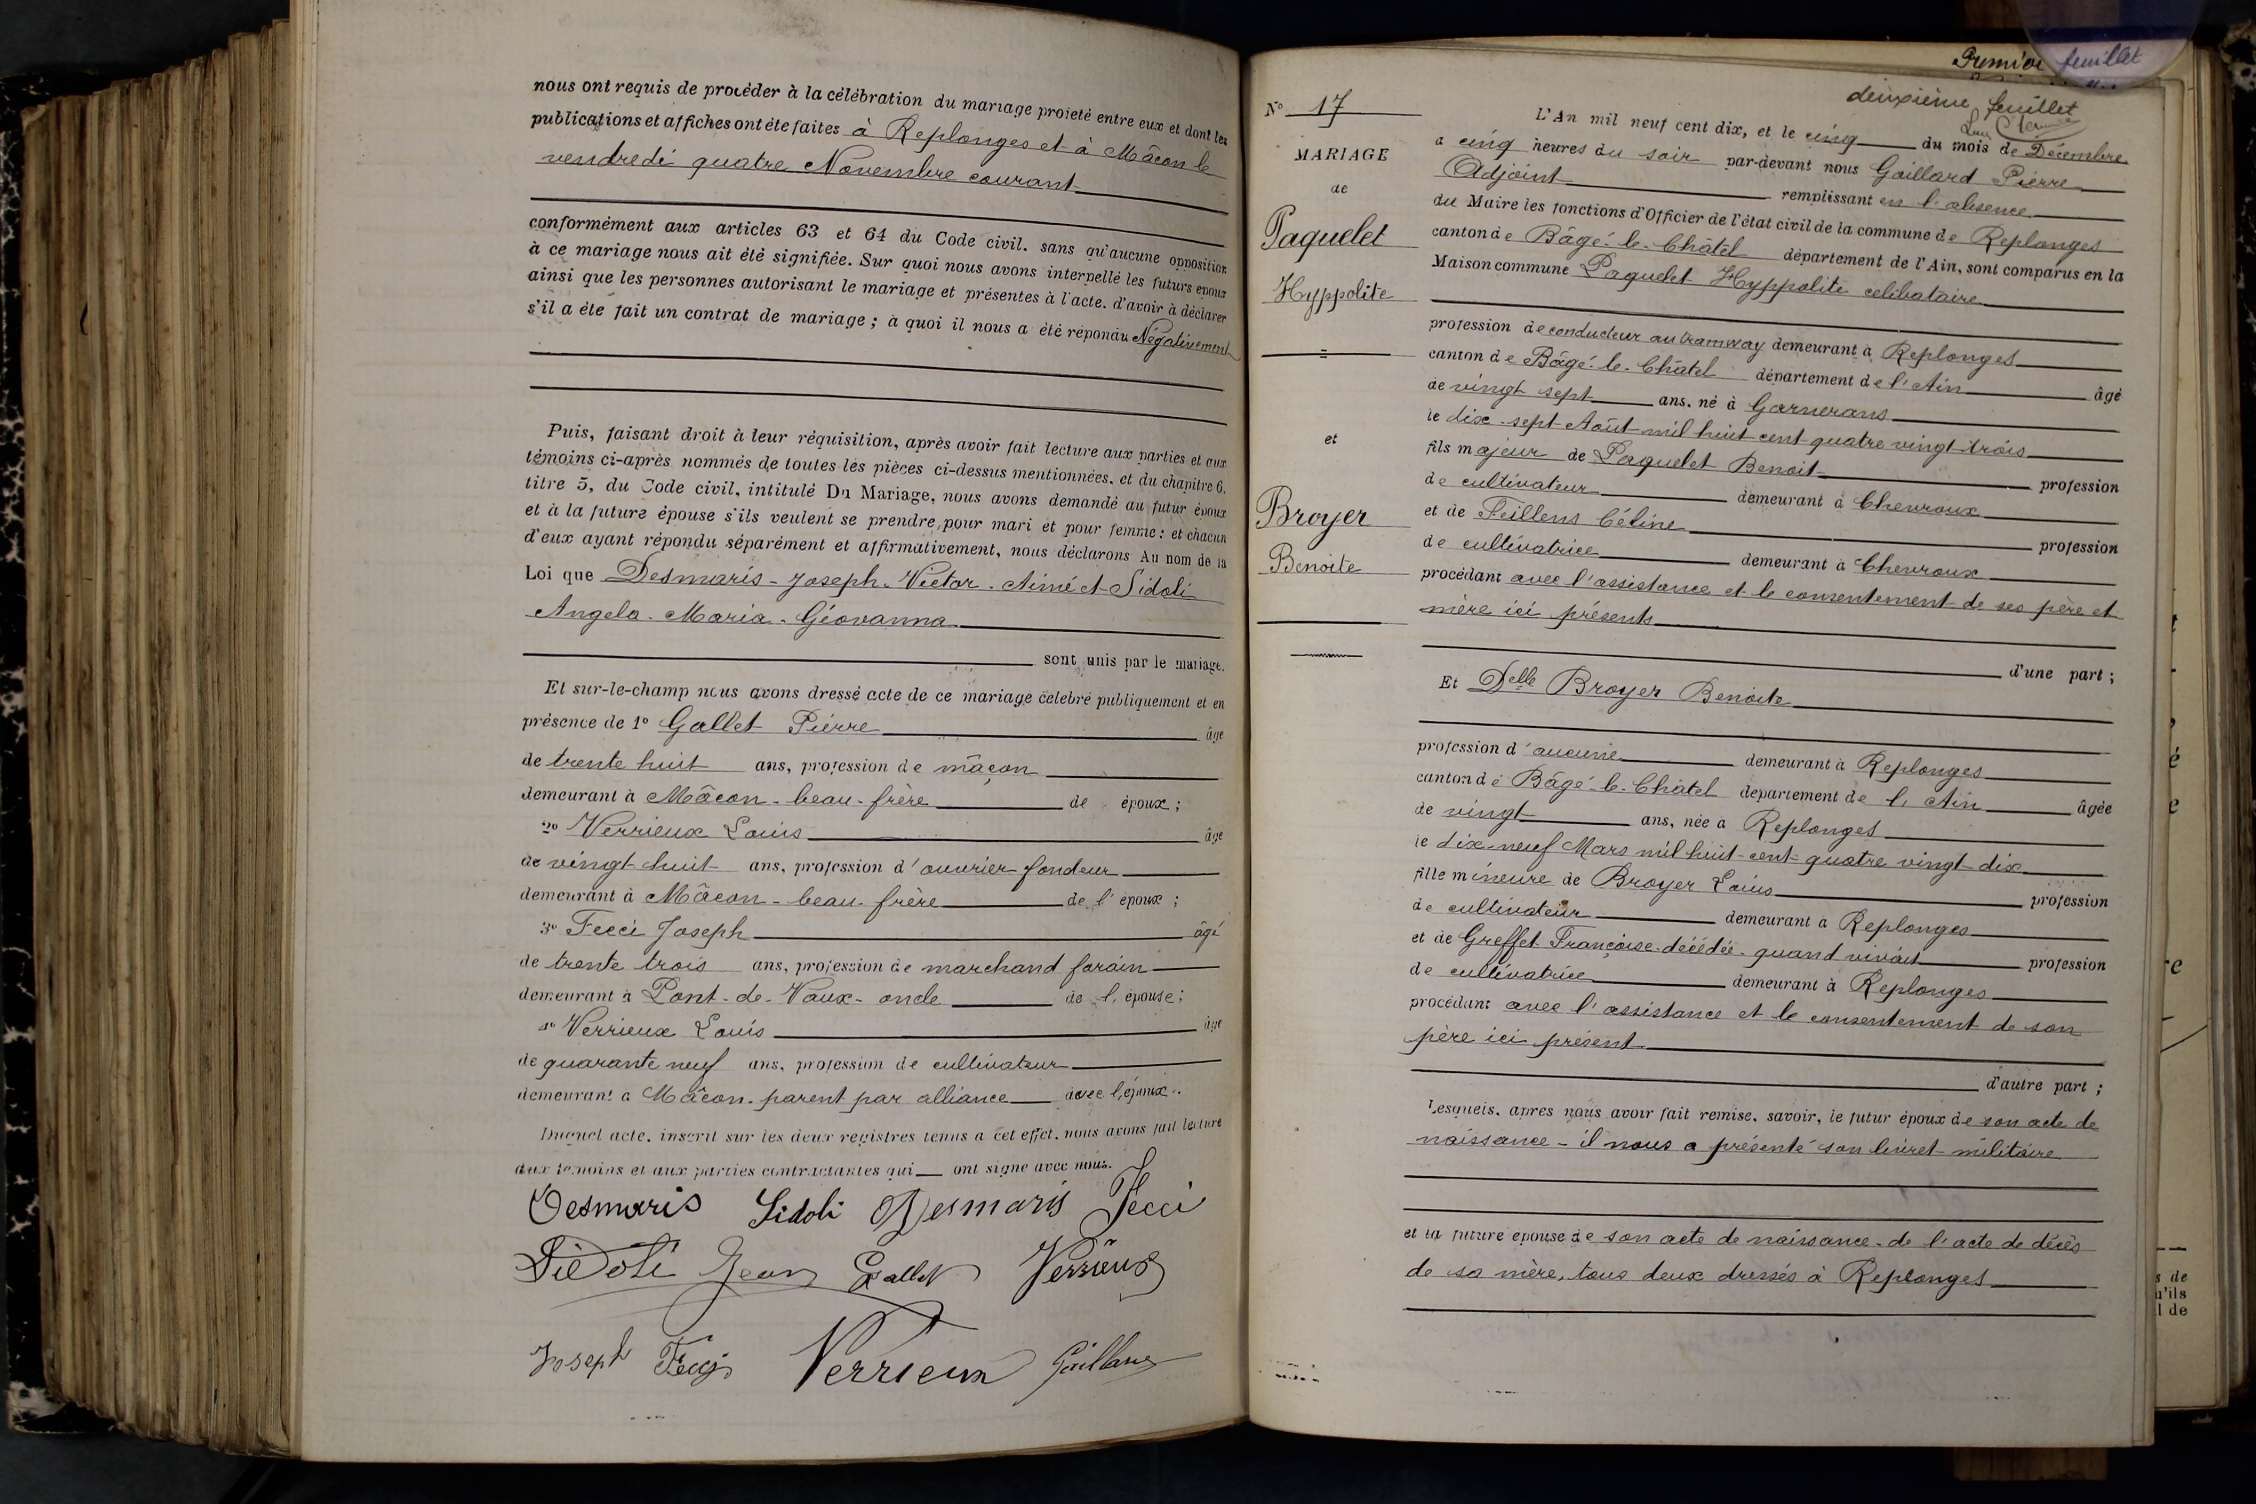 nous ont requis de procéder à la célébration du mariage projeté entre eux et dont les
publications et affiches ont été faites à Replonges et à Mâcon le
vendredi quatre Novembre courant
conformément aux articles 63 et 64 du Code civil. sans qu'aucune opposition
à ce mariage nous ait été signifiée. Sur quoi nous avons interpellé les futurs époux
ainsi que les personnes autorisant le mariage et présentes à l'acte. d'avoir à déclarer
s'il a été fait un contrat de mariage ; à quoi il nous a été répondu Négativement
Puis, faisant droit à leur réquisition, après avoir fait lecture aux parties et aux
témoins ci-après nommés de toutes les pièces ci-dessus mentionnées. et du chapitre 6.
titre 5, du Code civil, intitulé Du Mariage, nous avons demandé au futur époux
et à la future épouse s'ils veulent se prendre pour mari et pour femme : et chacun
d'eux ayant répondu séparément et affirmativement, nous déclarons Au nom de la
Loi que Desmaris - Joseph - Victor - Aimé et Sidoli
Angela - Maria - Géovanna
sont unis par le mariage.
Et sur-le-champ nous avons dressé acte de ce mariage célébré publiquement et en
présence de 1º Gallet Pierre âgé
de trente huit ans, profession de mâçon
demeurant à Mâcon - beau-frère de époux ;
2º Verrieux Louis âgé
de vingt huit ans, profession d'ouvrier fondeur
demeurant à Mâcon - beau-frère de l'époux ;
3º Fecci Joseph âgé
de trente trois ans, profession de marchand forain
demeurant à Pont-de-Vaux - oncle de l'épouse ;
4º Verrieux Louis âgé
de quarante neuf ans, profession de cultivateur
demeurant à Mâcon - parent par alliance avec l'époux.
Duquel acte, inscrit sur les deux registres tenus à cet effet. nous avons fait lecture
aux témoins et aux parties contractantes qui ont signé avec nous.
Desmaris Sidoli Desmaris Fecci
Sidoli Jean Gallet Verrieux
Joseph Fecci Verrieux Gaillard
Premier feuillet
deuxième feuillet
Nº 17
MARIAGE
de
Paquelet
Hyppolite
et
Broyer
Benoite
L'An mil neuf cent dix, et le cinq du mois de Décembre
à cinq heures du soir par-devant nous Gaillard Pierre
Adjoint remplissant en l'absence
du Maire les fonctions d'Officier de l'état civil de la commune de Replonges
canton de Bâgé-le-Châtel département de l'Ain, sont comparus en la
Maison commune Paquelet Hyppolite celibataire
profession de conducteur au tramway demeurant à Replonges
canton de Bâgé-le-Châtel département de l'Ain âgé
de vingt sept ans. né à Garnerans
le dix-sept Août mil huit cent quatre vingt-trois
fils majeur de Paquelet Benoit profession
de cultivateur demeurant à Chevroux
et de Feillens Céline profession
de cultivatrice demeurant à Chevroux
procédant avec l'assistance et le consentement de ses père et
mère ici présents
d'une part ;
Et Delle Broyer Benoite
profession d'aucune demeurant à Replonges
canton de Bâgé-le-Châtel département de l'Ain âgée
de vingt ans, née à Replonges
le dix-neuf Mars mil huit-cent-quatre vingt-dix
fille mineure de Broyer Louis profession
de cultivateur demeurant à Replonges
et de Greffet Françoise - décédée - quand vivait profession
de cultivatrice demeurant à Replonges
procédant avec l'assistance et le consentement de son
père ici présent
d'autre part ;
Lesquels. après nous avoir fait remise. savoir, le futur époux de son acte de
naissance - il nous a présenté son livret militaire
et la future épouse de son acte de naissance - de l'acte de décès
de sa mère, tous deux dressés à Replonges